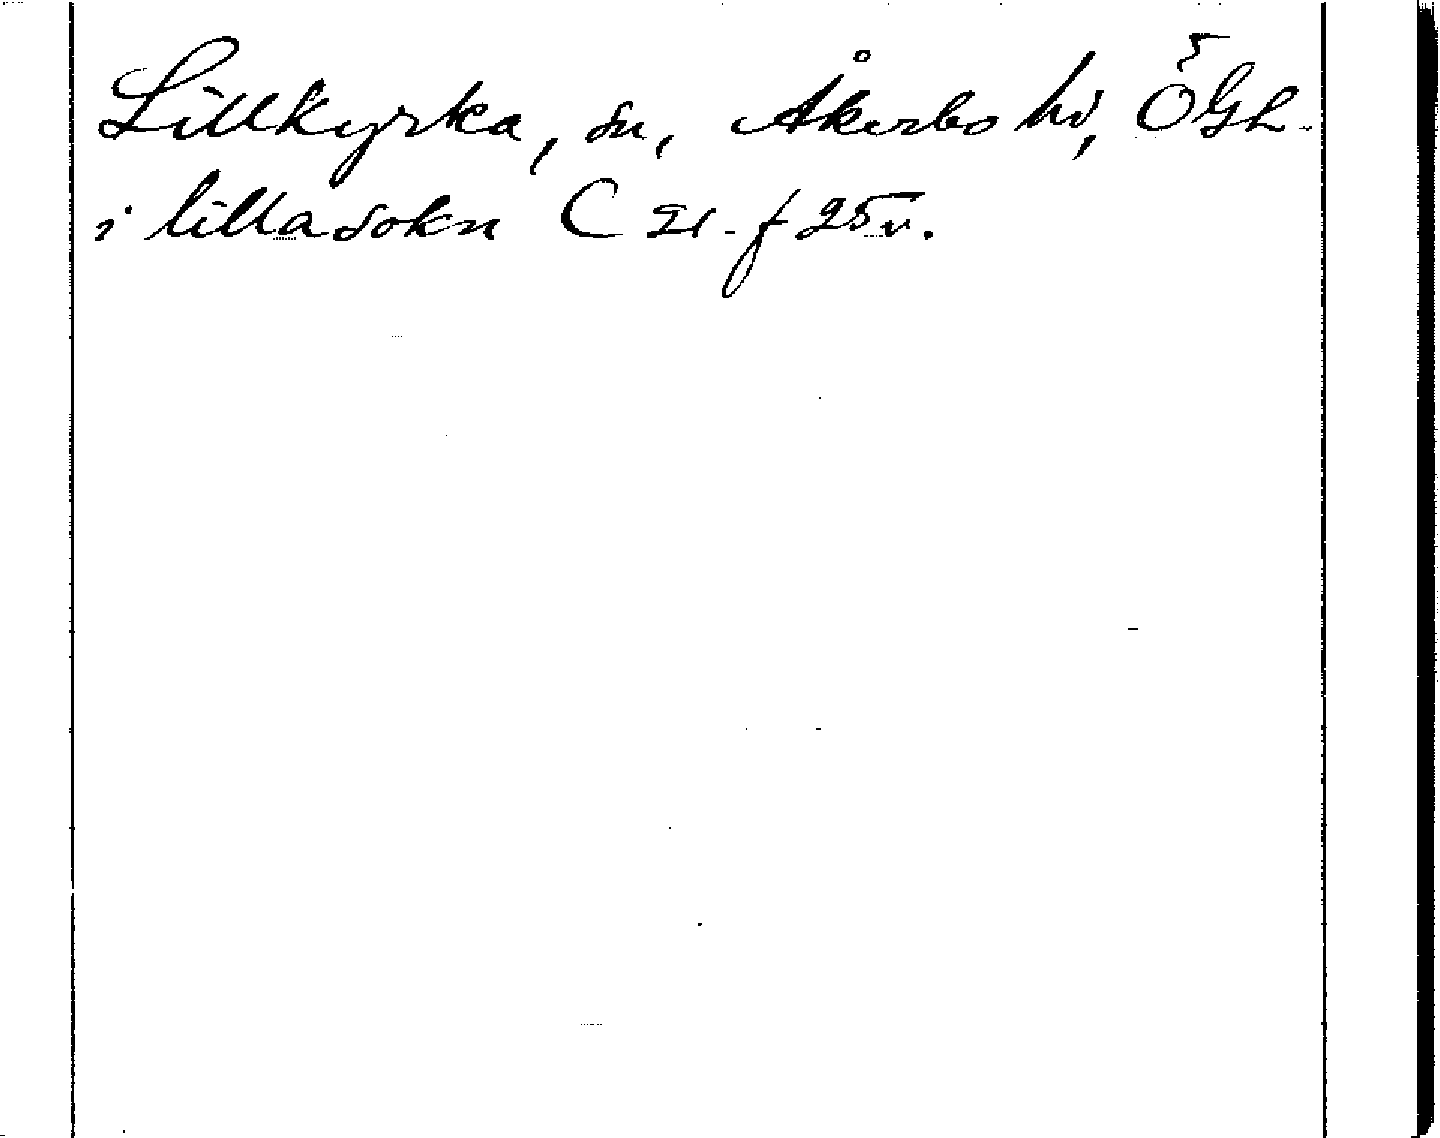 Lillkyrka, sn, Åkerbo hd, ÖGL.
i lillasokn C 21. f 25v.